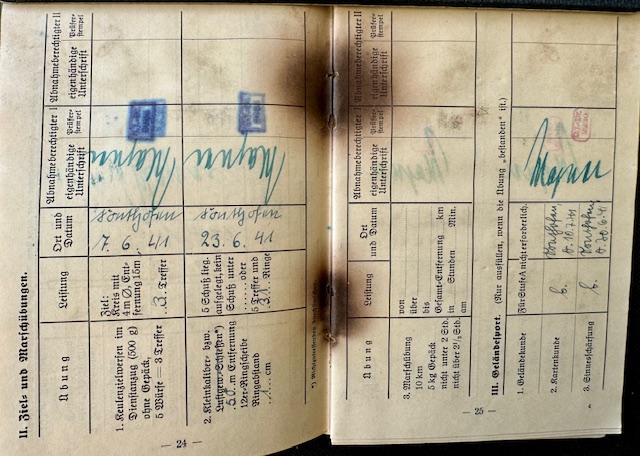 II. Ziel- und Marschübungen.
Übung
Leistung
Ort und
Datum
Abnahmeberechtigter I
eigenhändige
Unterschrift
Prüfer-
stempel
Abnahmeberechtigter II
eigenhändige
Unterschrift
Prüfer-
stempel
1. Keulenzielwerfen im
Dienstanzug (500 g)
ohne Gepäck,
5 Würfe — 3 Treffer
Ziel:
Kreis mit
4 m Ø, Ent-
fernung 18m
3 Treffer
Sonthofen
7. 6. 41
2. Kleinkaliber- bzw.
50 m Entfernung
12er-Ringscheibe
Ringabstand
cm
5 Schuß lieg.
aufgelegt, kein
Schuß unter
oder
5 Treffer und
Ringe
Sonthofen
23. 6. 41
— 24 —
Übung
Leistung
Ort
und Datum
Abnahmeberechtigter I
eigenhändige
Unterschrift
Prüfer-
stempel
Abnahmeberechtigter II
eigenhändige
Unterschrift
Prüfer-
stempel
3. Marschübung
10 km
5 kg Gepäck
nicht unter 2 Std.
nicht über 2½ Std.
von
über
bis
Gesamt-Entfernung km
in Stunden Min.
am
III. Geländesport. (Nur ausfüllen, wenn die Übung „bestanden“ ist.)
1. Geländekunde
Für Stufe A nicht erforderlich.
2. Kartenkunde
3. Sinnesschärfung
— 25 —